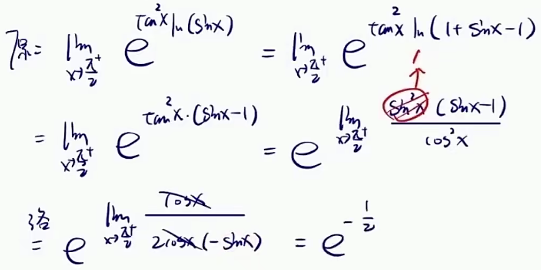 原= lim_{x→π/2⁺} e^{tan²x ln(sinx)} = lim_{x→π/2⁺} e^{tan²x ln(1+sinx-1)}
= lim_{x→π/2⁺} e^{tan²x·(sinx-1)} = e^{lim_{x→π/2⁺} sin²x (sinx-1)/cos²x} 1
洛= e^{lim_{x→π/2⁺} cosx/2cosx(-sinx)} = e^{-1/2}